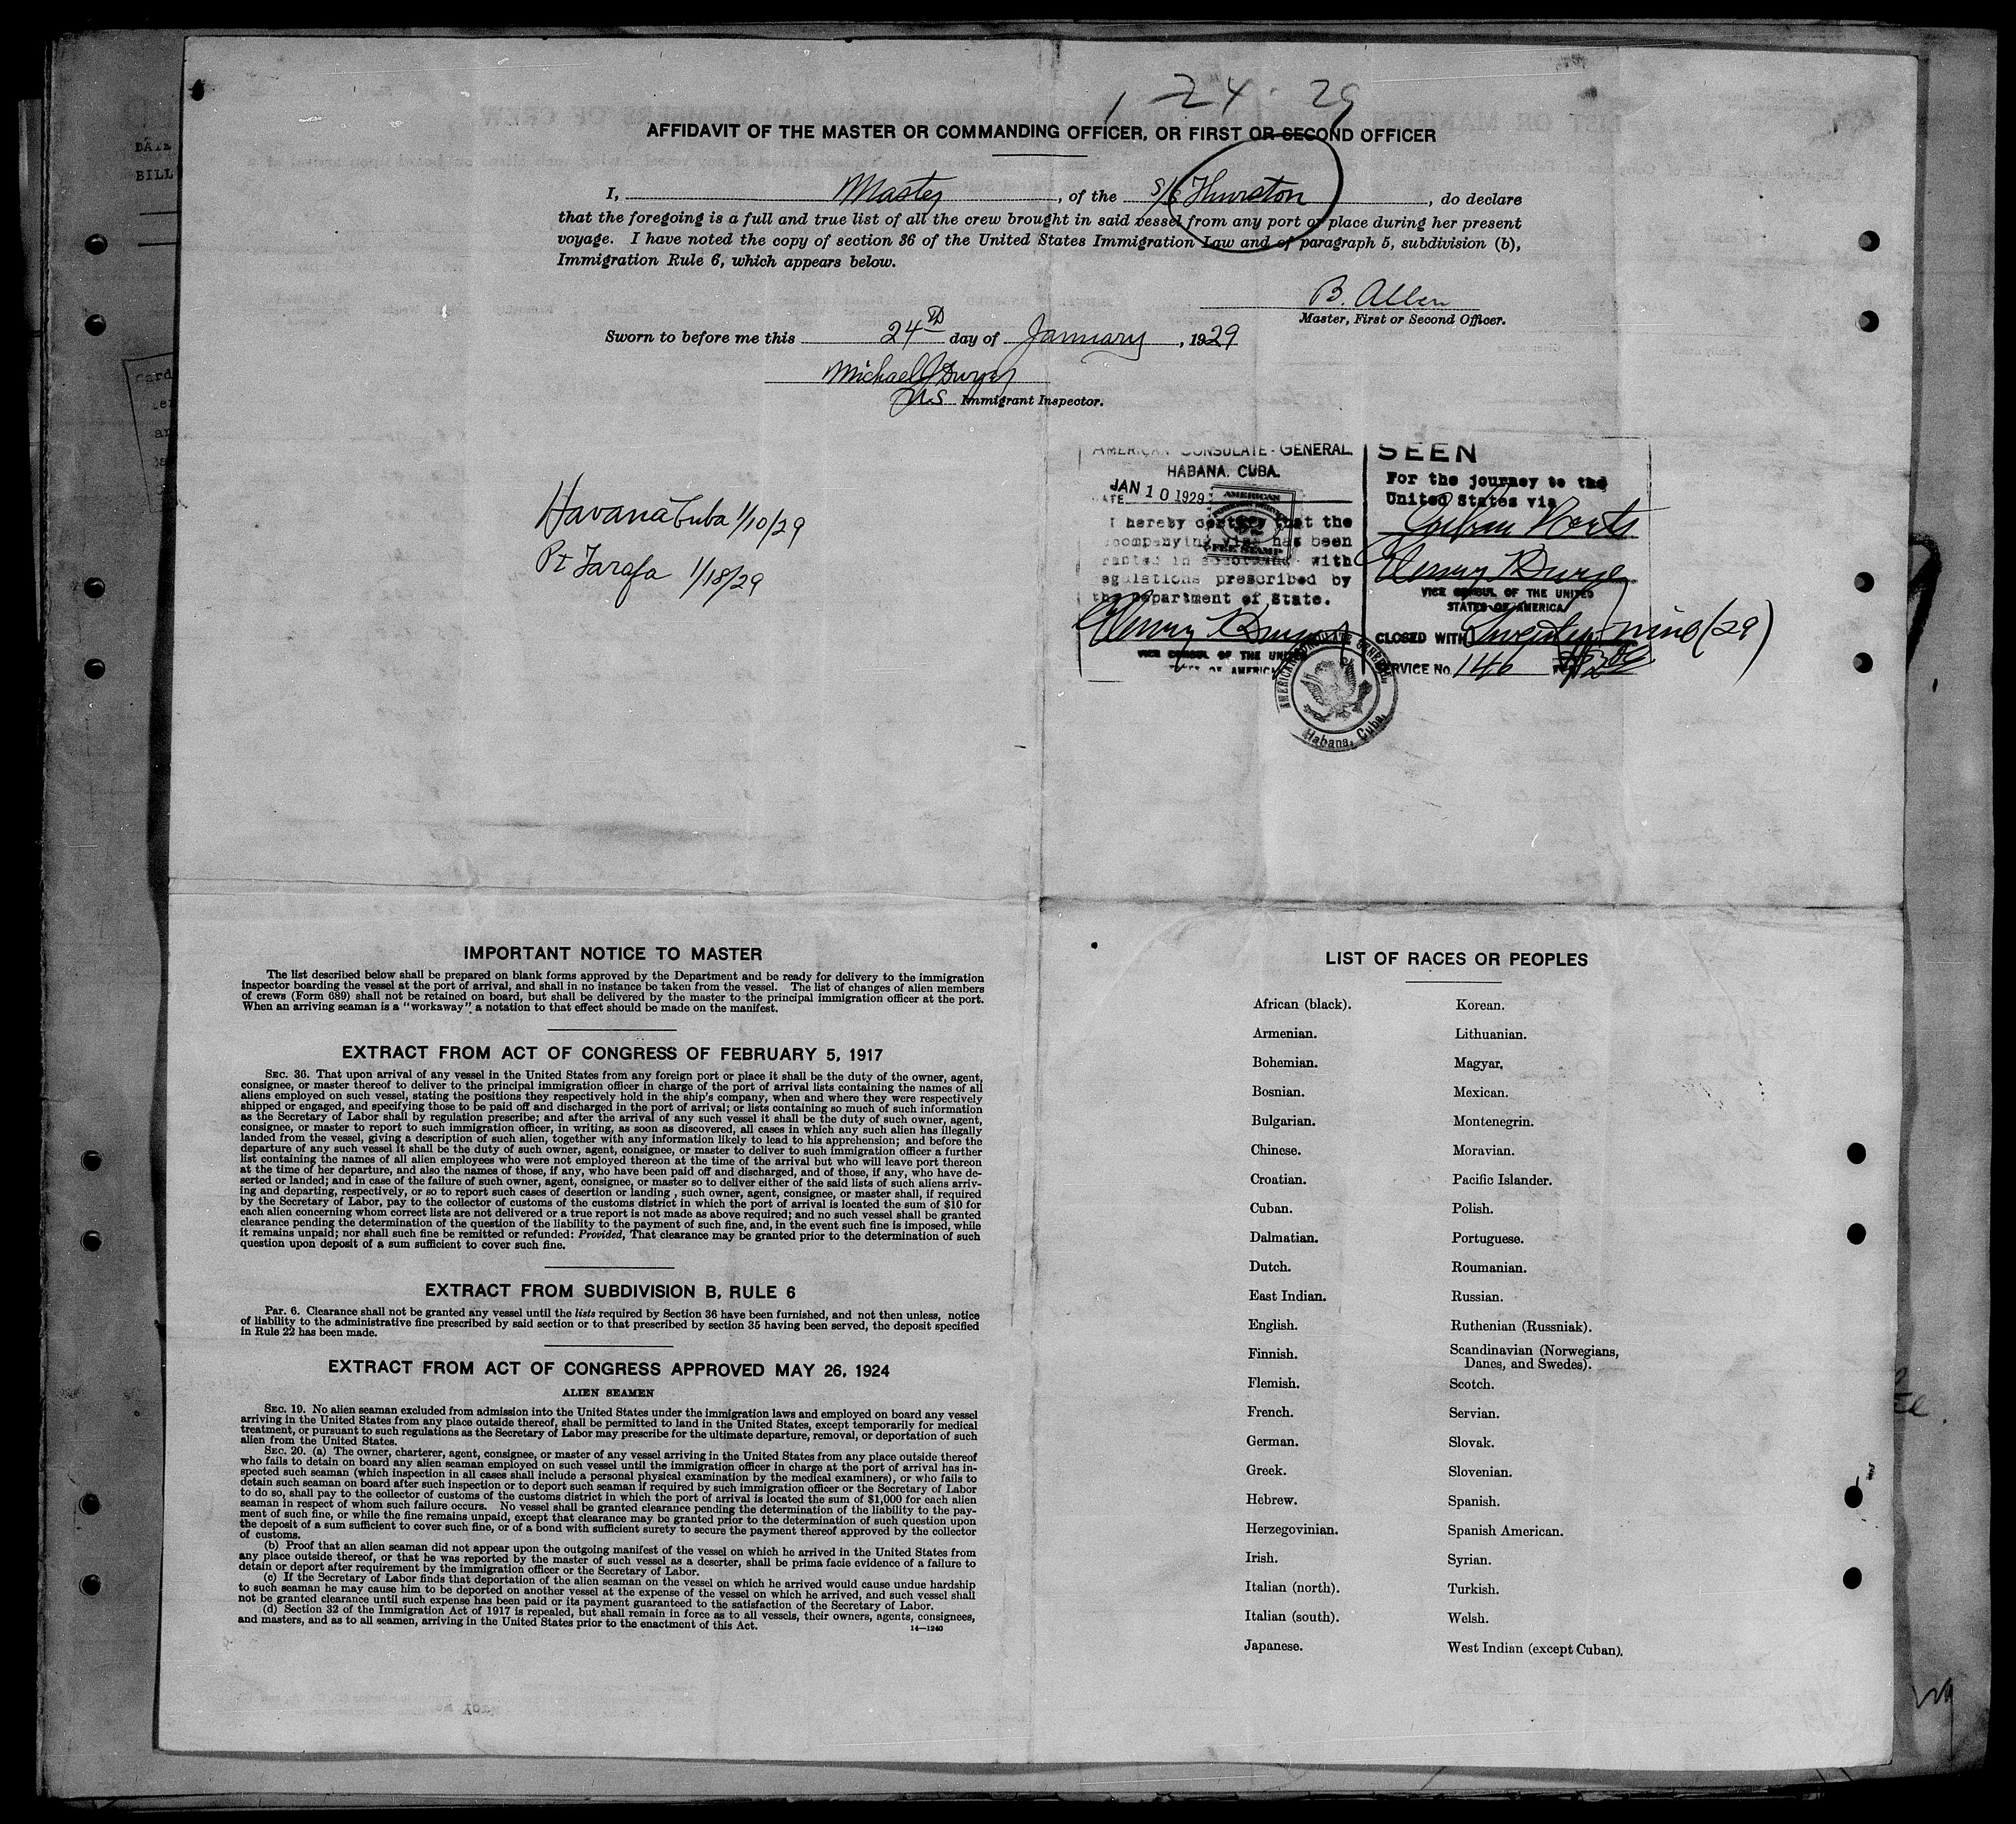 1-24-29
AFFIDAVIT OF THE MASTER OR COMMANDING OFFICER, OR FIRST OR SECOND OFFICER
I, Master, of the S/S Thurston, do declare
that the foregoing is a full and true list of all the crew brought in said vessel from any port or place during her present
voyage. I have noted the copy of section 36 of the United States Immigration Law and of paragraph 5, subdivision (b),
Immigration Rule 6, which appears below.
B. Allen
Master, First or Second Officer.
Sworn to before me this 24th day of January, 1929
Michael
US Immigrant Inspector.
DATE
BILL
Havana Cuba 1/10/29
Pt Tarafa 1/18/29
AMERICAN CONSULATE-GENERAL
HABANA, CUBA.
JAN 10 1929
I hereby certify that the
accompanying visa has been
granted in accordance with
regulations prescribed by
the Department of State.
Henry
VICE CONSUL OF THE UNITED
STATES OF AMERICA
AMERICAN
FEE STAMP
SEEN
For the journey to the
United States via
Cuban Ports
Henry
VICE CONSUL OF THE UNITED
STATES OF AMERICA
CLOSED WITH Twenty-nine (29)
SERVICE No. 146
AMERICAN CONSULATE GENERAL
Habana, Cuba.
IMPORTANT NOTICE TO MASTER
The list described below shall be prepared on blank forms approved by the Department and be ready for delivery to the immigration
inspector boarding the vessel at the port of arrival, and shall in no instance be taken from the vessel. The list of changes of alien members
of crews (Form 689) shall not be retained on board, but shall be delivered by the master to the principal immigration officer at the port.
When an arriving seaman is a "workaway" a notation to that effect should be made on the manifest.
EXTRACT FROM ACT OF CONGRESS OF FEBRUARY 5, 1917
SEC. 36. That upon arrival of any vessel in the United States from any foreign port or place it shall be the duty of the owner, agent,
consignee, or master thereof to deliver to the principal immigration officer in charge of the port of arrival lists containing the names of all
aliens employed on such vessel, stating the positions they respectively hold in the ship's company, when and where they were respectively
shipped or engaged, and specifying those to be paid off and discharged in the port of arrival; or lists containing so much of such information
as the Secretary of Labor shall by regulation prescribe; and after the arrival of any such vessel it shall be the duty of such owner, agent,
consignee, or master to report to such immigration officer, in writing, as soon as discovered, all cases in which any such alien has illegally
landed from the vessel, giving a description of such alien, together with any information likely to lead to his apprehension; and before the
departure of any such vessel it shall be the duty of such owner, agent, consignee, or master to deliver to such immigration officer a further
list containing the names of all alien employees who were not employed thereon at the time of the arrival but who will leave port thereon
at the time of her departure, and also the names of those, if any, who have been paid off and discharged, and of those, if any, who have de-
serted or landed; and in case of the failure of such owner, agent, consignee, or master so to deliver either of the said lists of such aliens arriv-
ing and departing, respectively, or so to report such cases of desertion or landing, such owner, agent, consignee, or master shall, if required
by the Secretary of Labor, pay to the collector of customs of the customs district in which the port of arrival is located the sum of $10 for
each alien concerning whom correct lists are not delivered or a true report is not made as above required; and no such vessel shall be granted
clearance pending the determination of the question of the liability to the payment of such fine, and, in the event such fine is imposed, while
it remains unpaid; nor shall such fine be remitted or refunded: Provided, That clearance may be granted prior to the determination of such
question upon deposit of a sum sufficient to cover such fine.
EXTRACT FROM SUBDIVISION B, RULE 6
Par. 6. Clearance shall not be granted any vessel until the lists required by Section 36 have been furnished, and not then unless, notice
of liability to the administrative fine prescribed by said section or to that prescribed by section 35 having been served, the deposit specified
in Rule 22 has been made.
EXTRACT FROM ACT OF CONGRESS APPROVED MAY 26, 1924
ALIEN SEAMEN
SEC. 19. No alien seaman excluded from admission into the United States under the immigration laws and employed on board any vessel
arriving in the United States from any place outside thereof, shall be permitted to land in the United States, except temporarily for medical
treatment, or pursuant to such regulations as the Secretary of Labor may prescribe for the ultimate departure, removal, or deportation of such
alien from the United States.
SEC. 20. (a) The owner, charterer, agent, consignee, or master of any vessel arriving in the United States from any place outside thereof
who fails to detain on board any alien seaman employed on such vessel until the immigration officer in charge at the port of arrival has in-
spected such seaman (which inspection in all cases shall include a personal physical examination by the medical examiners), or who fails to
detain such seaman on board after such inspection or to deport such seaman if required by such immigration officer or the Secretary of Labor
to do so, shall pay to the collector of customs of the customs district in which the port of arrival is located the sum of $1,000 for each alien
seaman in respect of whom such failure occurs. No vessel shall be granted clearance pending the determination of the liability to the pay-
ment of such fine, or while the fine remains unpaid, except that clearance may be granted prior to the determination of such question upon
the deposit of a sum sufficient to cover such fine, or of a bond with sufficient surety to secure the payment thereof approved by the collector
of customs.
(b) Proof that an alien seaman did not appear upon the outgoing manifest of the vessel on which he arrived in the United States from
any place outside thereof, or that he was reported by the master of such vessel as a deserter, shall be prima facie evidence of a failure to
detain or deport after requirement by the immigration officer or the Secretary of Labor.
(c) If the Secretary of Labor finds that deportation of the alien seaman on the vessel on which he arrived would cause undue hardship
to such seaman he may cause him to be deported on another vessel at the expense of the vessel on which he arrived, and such vessel shall
not be granted clearance until such expense has been paid or its payment guaranteed to the satisfaction of the Secretary of Labor.
(d) Section 32 of the Immigration Act of 1917 is repealed, but shall remain in force as to all vessels, their owners, agents, consignees,
and masters, and as to all seamen, arriving in the United States prior to the enactment of this Act.
14—1240
LIST OF RACES OR PEOPLES
African (black).
Armenian.
Bohemian.
Bosnian.
Bulgarian.
Chinese.
Croatian.
Cuban.
Dalmatian.
Dutch.
East Indian.
English.
Finnish.
Flemish.
French.
German.
Greek.
Hebrew.
Herzegovinian.
Irish.
Italian (north).
Italian (south).
Japanese.
Korean.
Lithuanian.
Magyar.
Mexican.
Montenegrin.
Moravian.
Pacific Islander.
Polish.
Portuguese.
Roumanian.
Russian.
Ruthenian (Russniak).
Scandinavian (Norwegians,
Danes, and Swedes).
Scotch.
Servian.
Slovak.
Slovenian.
Spanish.
Spanish American.
Syrian.
Turkish.
Welsh.
West Indian (except Cuban).